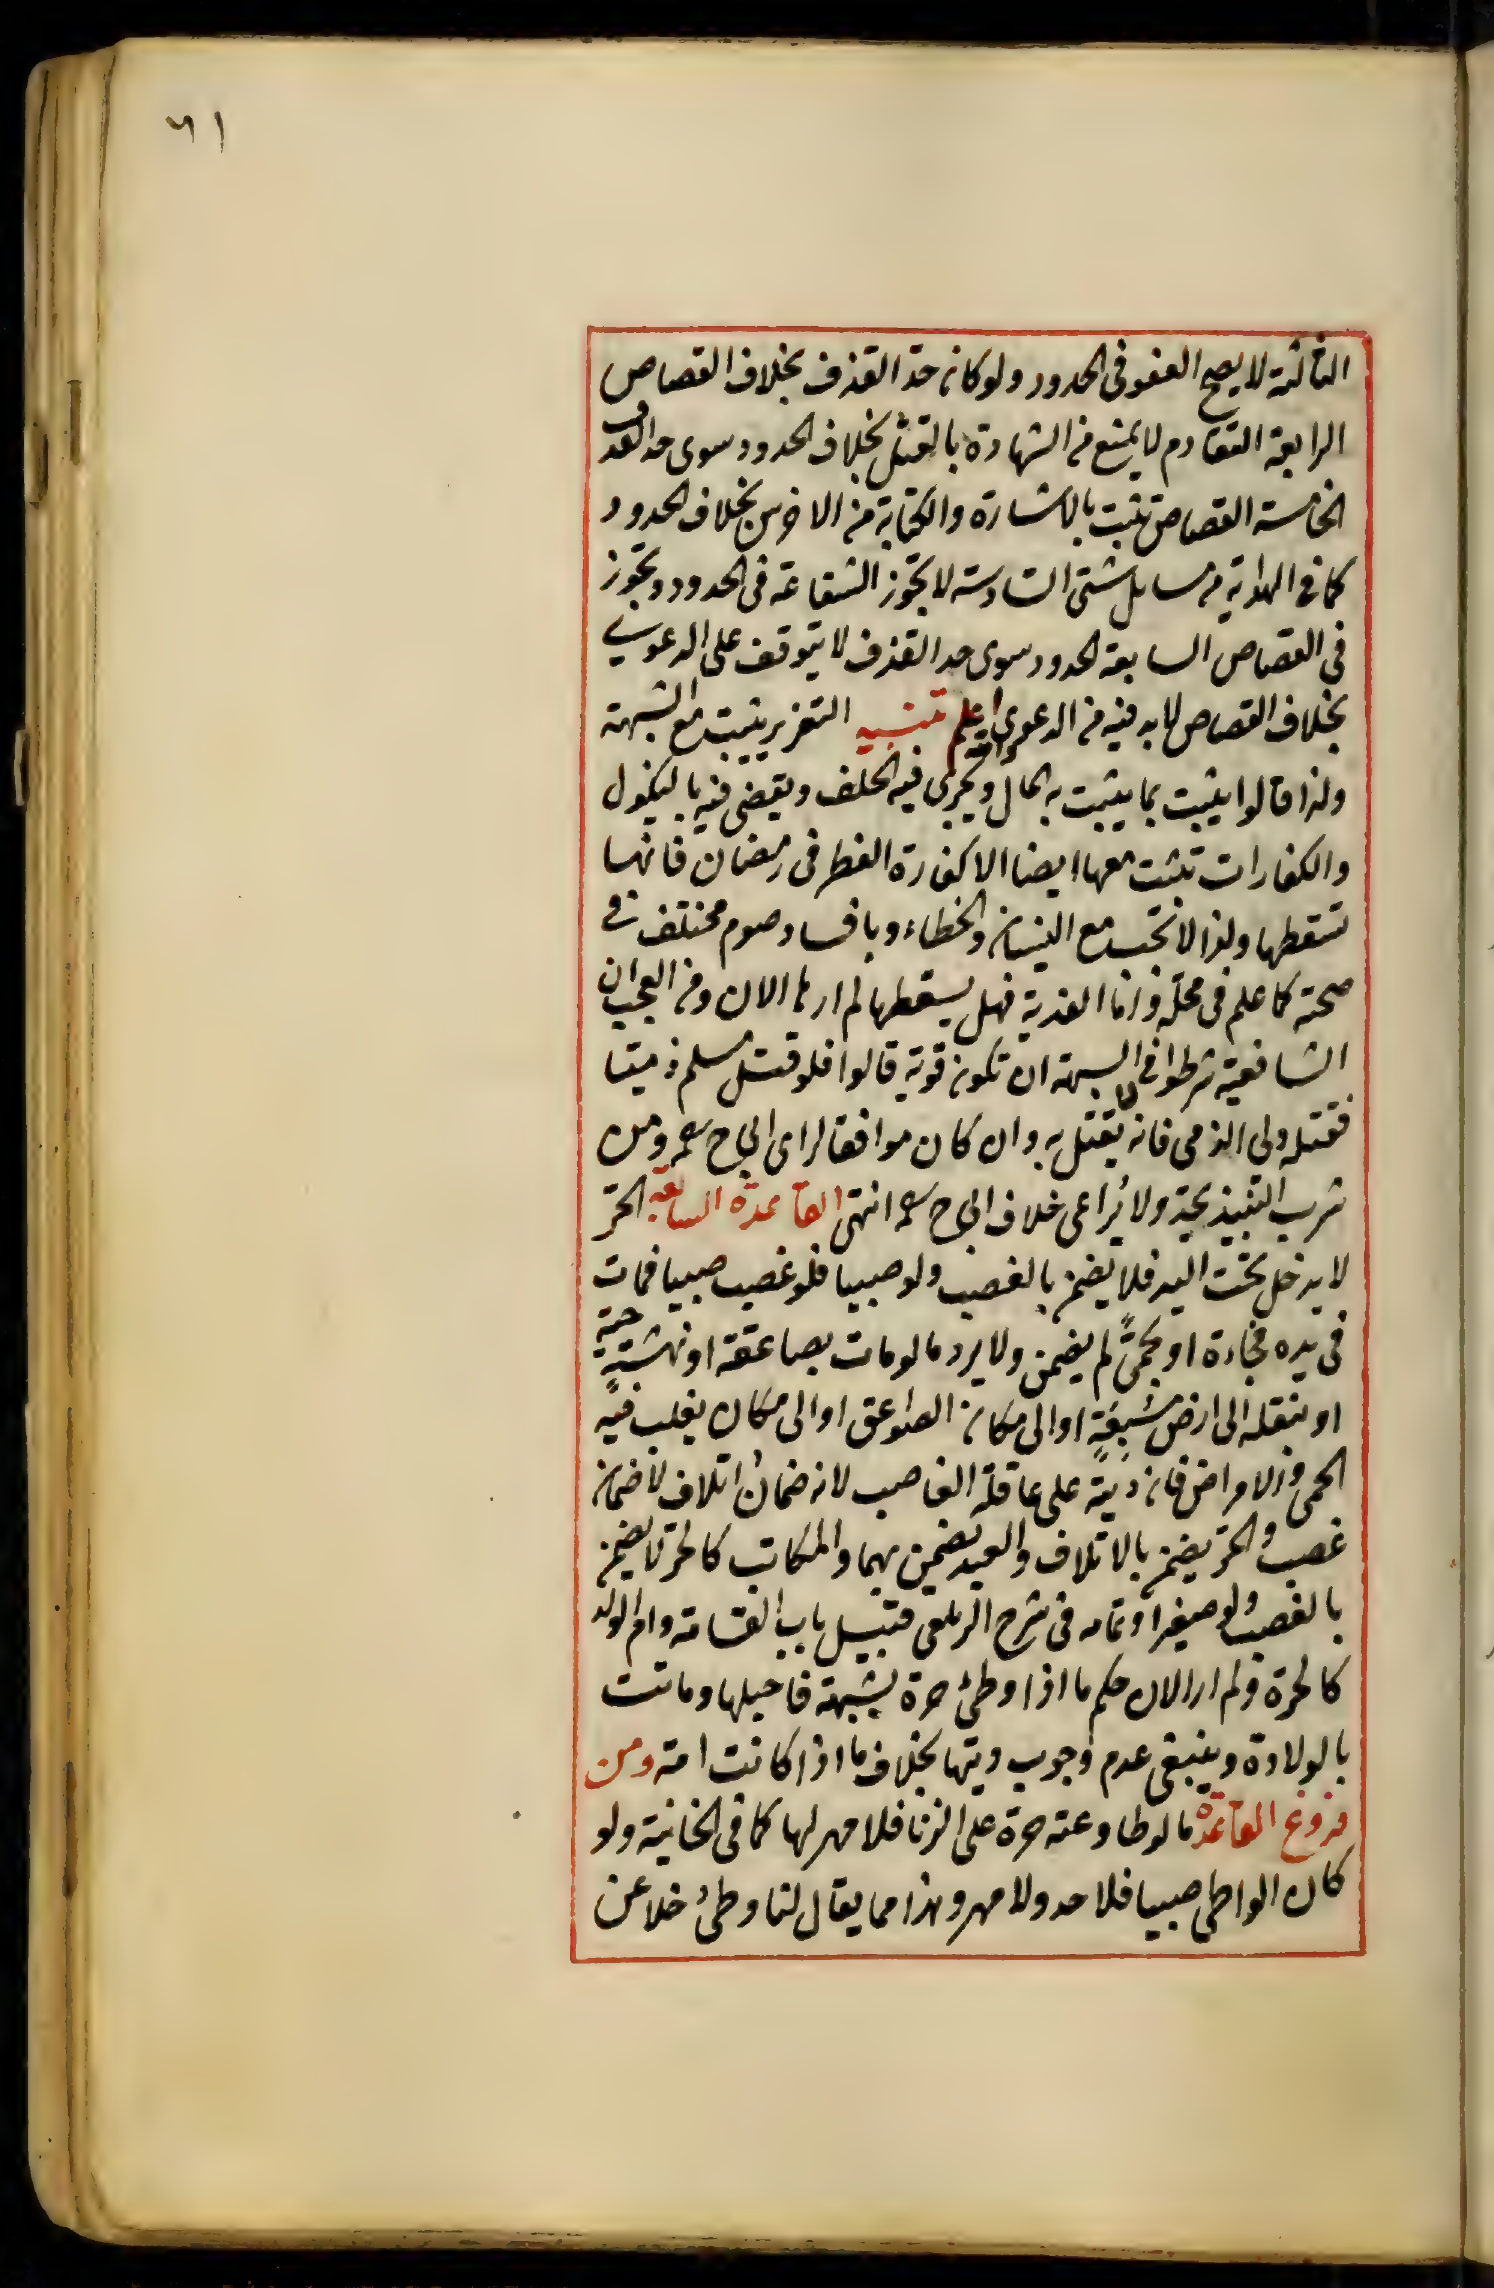 ٦١
الثالثة لا يصح العفو فى الحدود ولو كان حدّ القذف بخلاف القصاص
الرابعة التقادم لا يمنع من الشهادة بالقتل بخلاف الحدود سوى حد القذف
الخامسة القصاص تثبت بالاشارة والكتابة من الاخرس بخلاف الحدود
كما فى الهداية من مسايل شتى السادسة لا تجوز الشفاعة فى الحدود وتجوز
فى القصاص السابعة الحدود سوى حد القذف لا يتوقف على الدعوى
بخلاف القصاص لا بد فيه من الدعوى والله اعلم تنبيه التعزير يثبت مع الشبهة
ولذا قالوا يثبت بما يثبت به المال ويجرى فيه الحلف ويقضى فيه بالنكول
والكفارات تثبت معها ايضا الا كفارة الفطر فى رمضان فانها
تسقطها ولذا لا تجب مع النسيان والخطاء وبافساد صوم مختلف فى
صحته كما علم فى محله واما الفدية فهل يسقطها لم ارها الان ومن العجب ان
الشافعية شرطوا فى الشبهة ان تكون قوية قالوا فلو قتل مسلم ذميتا
فقتله ولى الذمى فانه يقتل به وان كان موافقا لراى ابى ح رحمه ومن
شرب النبيذ يحدّ ولا يُراعى خلاف ابى ح رحمه انتهى القاعدة السابعة الحرّ
لا يدخل تحت اليد فلا يضمن بالغصب ولو صبيا فلو غصب صبيا فمات
فى يده فجاءة او بحمىً لم يضمن ولا يرد ما لو مات بصاعقة او نهشة حية
او بنقله الى ارض مسبعةٍ او الى مكان الصواعق او الى مكان يغلب فيه
الحمى والامراض فان ديته على عاقلة الغاصب لانه ضمان اتلاف لا ضمان
غصب والحرّ يضمن بالاتلاف والعبد يضمن بهما والمكاتب كالحر لا يضمن
بالغصب ولو صغيرا وتمامه فى شرح الزيلعى قبيل باب القسامة وام الولد
كالحرة ولم ار الان حكم ما اذا وطئ حرة بشبهة فاحبلها وماتت
بالولادة وينبغى عدم وجوب ديتها بخلاف ما اذا كانت امة ومن
فروع القاعدة ما لو طاوعته حرة على الزنا فلا مهر لها كما فى الخانية ولو
كان الواطى صبيا فلا حد ولا مهر وهذا مما يقال لنا وطئ خلا عن